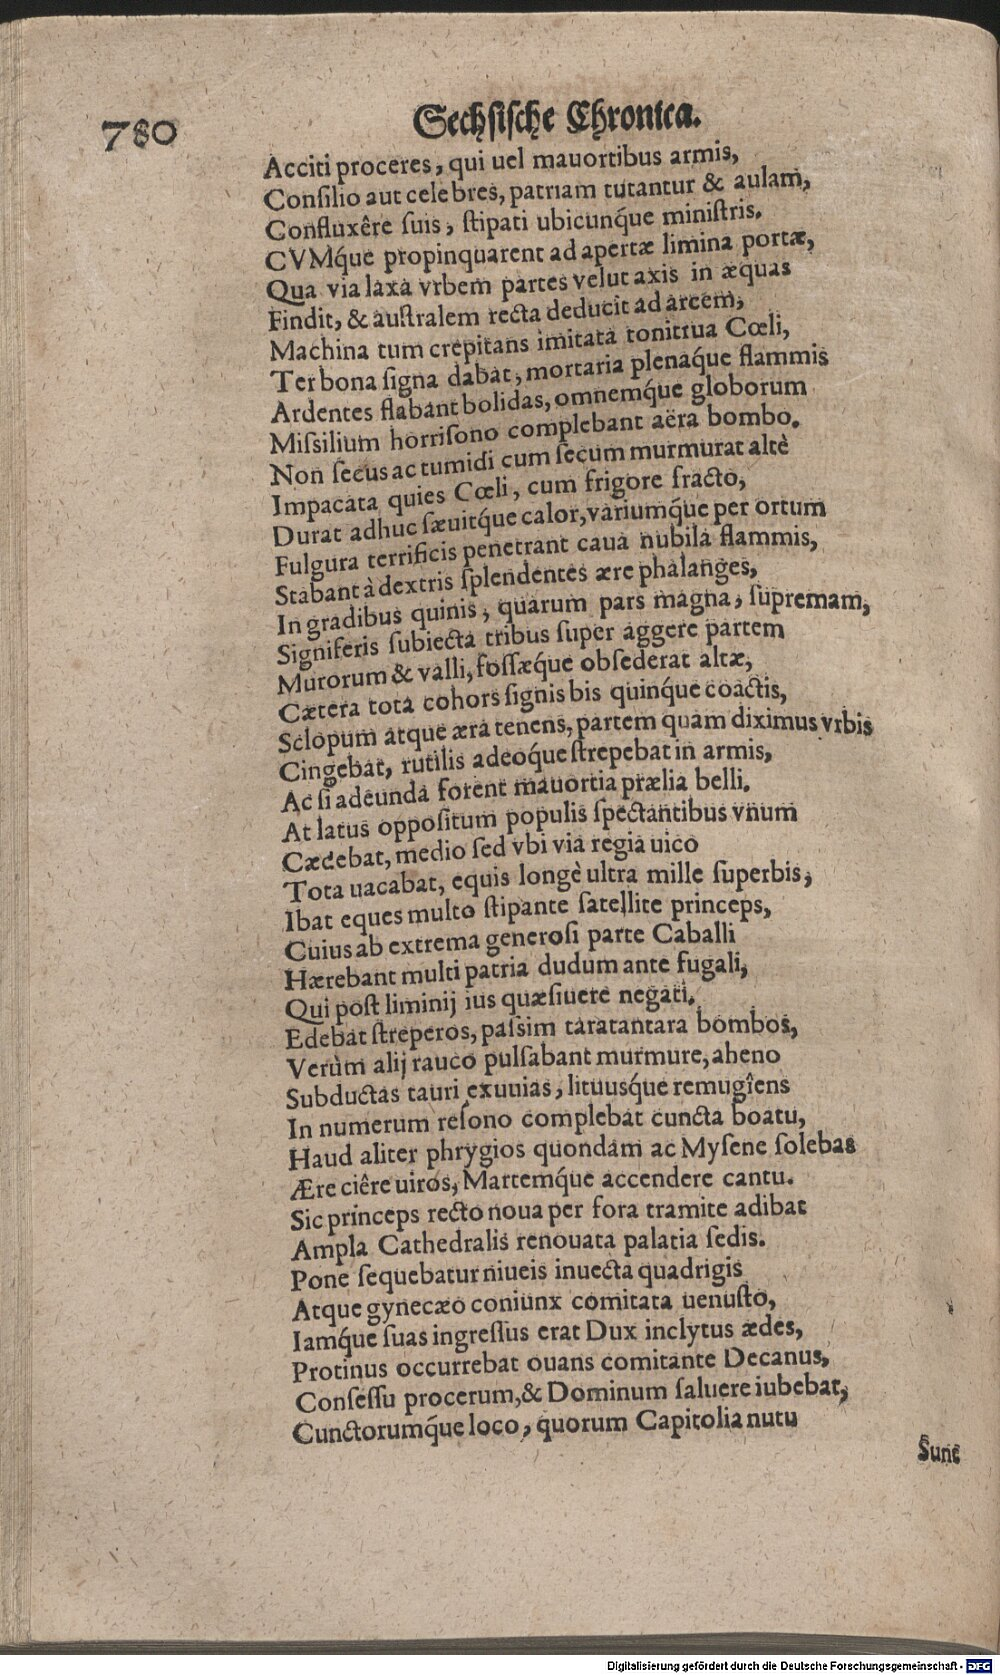 780
Sechsische Chronica.
Acciti proceres, qui uel mauortibus armis,
Consilio aut celebres, patriam tutantur & aulam,
Confluxêre suis, stipati ubicunq́ue ministris.
CVMq́ue propinquarent ad apertæ limina portæ,
Qua via laxa vrbem partes velut axis in æquas
Findit, & australem recta deducit ad arcem,
Machina tum crepitans imitata tonitrua Cœli,
Ter bona signa dabat, mortaria plenaq́ue flammis
Ardentes flabant bolidas, omnemq́ue globorum
Missilium horrisono complebant aëra bombo.
Non secus ac tumidi cum secum murmurat altè
Impacata quies Cœli, cum frigore fracto,
Durat adhuc sæuitq́ue calor, variumq́ue per ortum
Fulgura terrificis penetrant caua nubila flammis,
Stabant à dextris splendentes ære phalanges,
In gradibus quinis, quarum pars magna, supremam,
Signiferis subiecta tribus super aggere partem
Murorum & valli, fossæq́ue obsederat altæ,
Cætera tota cohors signis bis quinq́ue coactis,
Sclopum atque æra tenens, partem quam diximus vrbis
Cingebat, rutilis adeoq́ue strepebat in armis,
Ac si adeunda forent mauortia prælia belli.
At latus oppositum populis spectantibus vnum
Cædebat, medio sed vbi via regia uico
Tota uacabat, equis longè ultra mille superbis,
Ibat eques multo stipante satellite princeps,
Cuius ab extrema generosi parte Caballi
Hærebant multi patria dudum ante fugali,
Qui post liminij ius quæsiuere negati.
Edebat streperos, passim taratantara bombos,
Verùm alij rauco pulsabant murmure, aheno
Subductas tauri exuuias, lituusq́ue remugîens
In numerum resono complebat cuncta boatu,
Haud aliter phrygios quondam ac Mysene solebas
Ære ciêre uiros, Martemq́ue accendere cantu.
Sic princeps recto noua per fora tramite adibat
Ampla Cathedralis renouata palatia sedis.
Pone sequebatur niueis inuecta quadrigis
Atque gynecæo coniunx comitata uenusto,
Iamq́ue suas ingressus erat Dux inclytus ædes,
Protinus occurrebat ouans comitante Decanus,
Consessu procerum, & Dominum saluere iubebat,
Cunctorumq́ue loco, quorum Capitolia nutu
Sunt
Digitalisierung gefördert durch die Deutsche Forschungsgemeinschaft - DFG